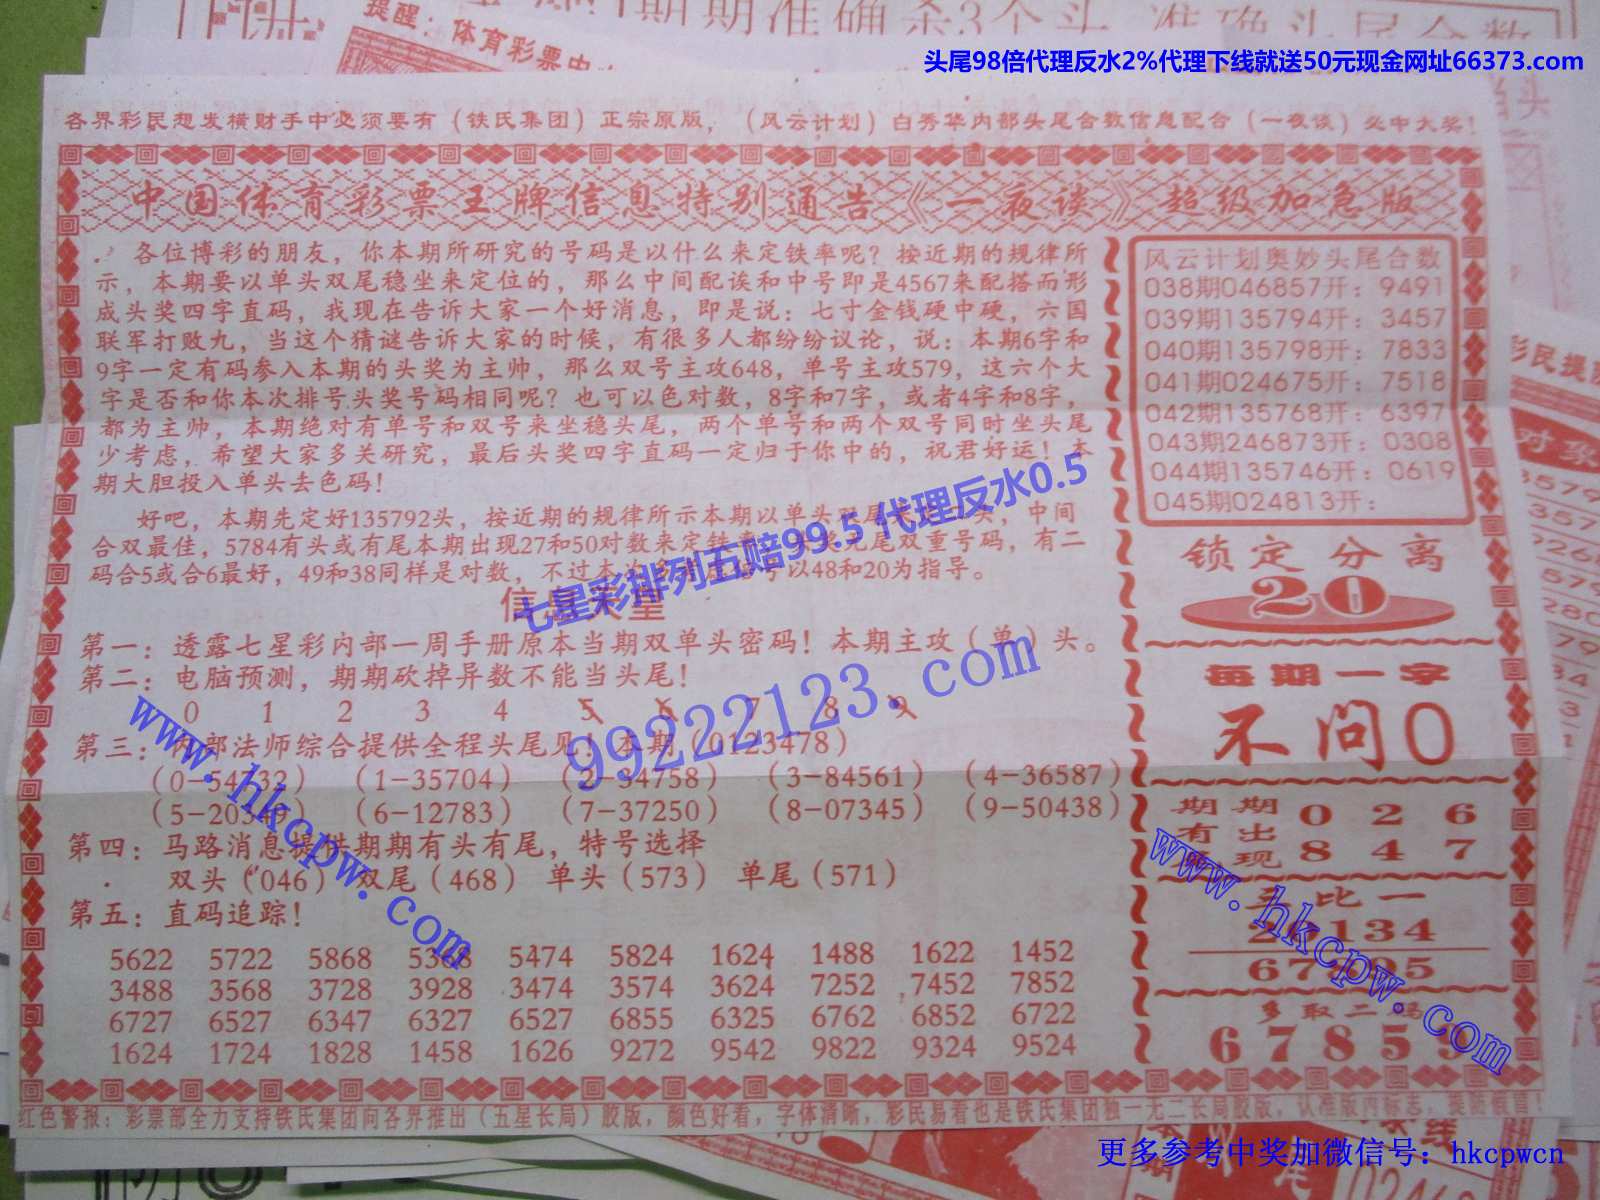 头尾98倍代理反水2%代理下线就送50元现金网址66373.com
提醒：体育彩票中
各界彩民想发横财手中必须要有（铁氏集团）正宗原版，（风云计划）白秀华内部头尾合数信息配合（一夜谈）必中大奖！
中国体育彩票王牌信息特别通告《一夜谈》超级加急版
各位博彩的朋友，你本期所研究的号码是以什么来定铁率呢？按近期的规律所
示，本期要以单头双尾稳坐来定位的，那么中间配诶和中号即是4567来配搭而形
成头奖四字直码，我现在告诉大家一个好消息，即是说：七寸金钱硬中硬，六国
联军打败九，当这个猜谜告诉大家的时候，有很多人都纷纷议论，说：本期6字和
9字一定有码参入本期的头奖为主帅，那么双号主攻648，单号主攻579，这六个大
字是否和你本次排号头奖号码相同呢？也可以色对数，8字和7字，或者4字和8字，
都为主帅，本期绝对有单号和双号来坐稳头尾，两个单号和两个双号同时坐头尾
少考虑，希望大家多关研究，最后头奖四字直码一定归于你中的，祝君好运！本
期大胆投入单头去色码！
好吧，本期先定好135792头，按近期的规律所示本期以单头双尾 头，中间
合双最佳，5784有头或有尾本期出现27和50对数来定铁 尾双重号码，有二
码合5或合6最好，49和38同样是对数，不过本 以48和20为指导。
七星彩排列五赔99.5 代理反水0.5
第一：透露七星彩内部一周手册原本当期双单头密码！本期主攻（单）头。
第二：电脑预测，期期砍掉异数不能当头尾！
0 1 2 3 4 5 6 7 8 9
第三：内部法师综合提供全程头尾见！本期（0123478）
（0-54 32）（1-35704）（2-34758）（3-84561）（4-36587）
（5-2034 ）（6-12783）（7-37250）（8-07345）（9-50438）
第四：马路消息提供期期有头有尾，特号选择
双头（046） 双尾（468） 单头（573） 单尾（571）
第五：直码追踪！
5622 5722 5868 5368 5474 5824 1624 1488 1622 1452
3488 3568 3728 3928 3474 3574 3624 7252 7452 7852
6727 6527 6347 6327 6527 6855 6325 6762 6852 6722
1624 1724 1828 1458 1626 9272 9542 9822 9324 9524
风云计划奥妙头尾合数
038期046857开：9491
039期135794开：3457
040期135798开：7833
041期024675开：7518
042期135768开：6397
043期246873开：0308
044期135746开：0619
045期024813开：
锁定分离
20
每期一字
不问0
期期 0 2 6
有出
现 8 4 7
比一
134
多取二码
6 7 8 5 9
99222123.com
www.hkcpw.com
www.hkcpw.com
红色警报：彩票部全力支持铁氏集团向各界推出（五星长局）胶版，颜色好看，字体清晰，彩民易看也是铁氏集团独一无二长局胶版，认准版内标志，提防假冒！
更多参考中奖加微信号：hkcpwcn